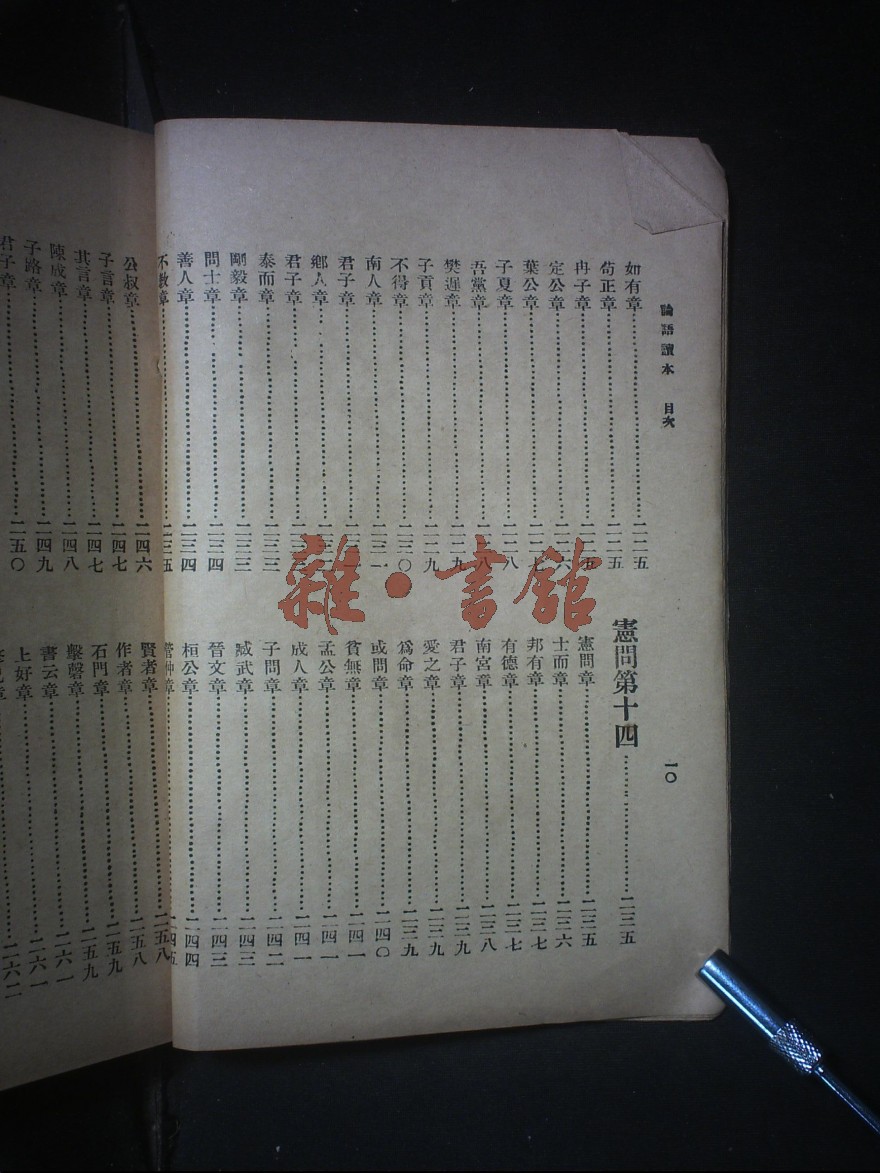 論語讀本 目次 一〇
如有章 二二五
苟正章 二二五
冉子章 二二五
定公章 二二六
葉公章 二二七
子夏章 二二八
吾黨章 二二八
樊遲章 二二九
子貢章 二二九
不得章 二三〇
南人章 二三一
君子章
鄉人章
君子章
泰而章 二三三
剛毅章 二三三
問士章 二三四
善人章 二三四
不教章 二三五
憲問第十四 二三五
憲問章 二三五
士而章 二三六
邦有章 二三七
有德章 二三七
南宮章 二三八
君子章 二三九
愛之章 二三九
爲命章 二三九
或問章 二四〇
貧無章 二四一
孟公章 二四一
成人章 二四一
子問章 二四二
臧武章 二四三
晉文章 二四三
桓公章 二四四
管仲章 二四五
公叔章 二四六
子言章 二四七
其言章 二四七
陳成章 二四八
子路章 二四九
君子章 二五〇
賢者章 二五八
作者章 二五八
石門章 二五九
擊磬章 二五九
書云章 二六一
上好章 二六一
二六二
雜·書館